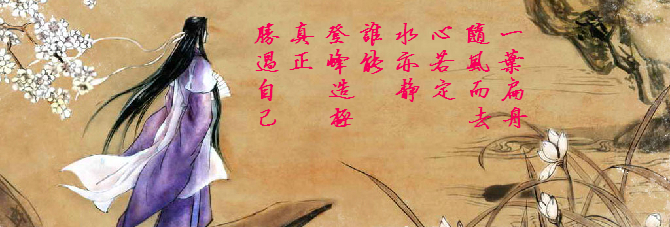 一葉扁舟
隨風而去
心若定
水亦静
誰能
登峰造極
真正
勝過自己